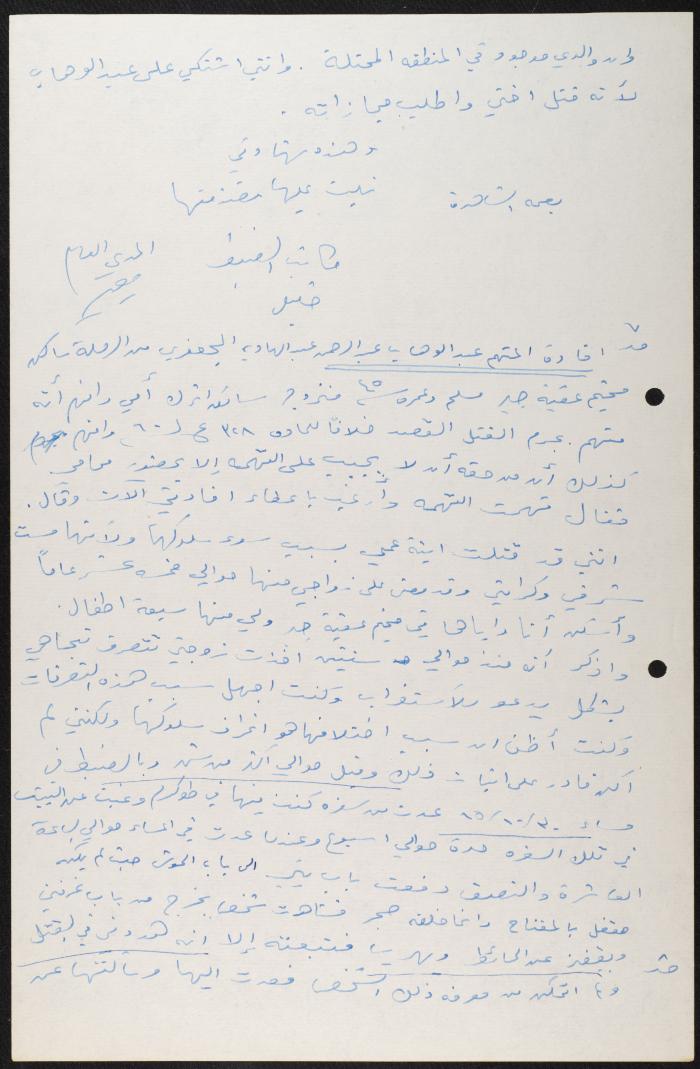 وان والدي موجود في المنطقه المحتلة . وانني اشتكي على عبد الوهاب
لأنه قتل اختي واطلب مجازاته .
وهذه شهادتي
بصمة الشاهدة تليت عليها فصدقتها
المدعي العام كاتب الضبط
افادة المتهم عبد الوهاب عبد الرحمن عبد الهادي الجعفري من الرملة ساكن
مخيم عقبة جبر مسلم وعمره ٤٥ متزوج سائق اترك أمي وافهم أنه
متهم بجرم القتل القصد خلافا للمادة ٣٢٨ ع ل ٦٠ وافهم
كذلك أن من حقه أن لا يجيب على التهمه إلا بحضور محامي
فقال فهمت التهمه وأرغب باعطاء افادتي الآن وقال .
انني قد قتلت ابنة عمي بسبب سوء سلوكها ولأنها مست
شرفي وكرامتي وقد مضى على زواجي منها حوالي خمسه عشر عاماً
وأسكن أنا واياها في مخيم عقبة جبر ولي منها سبعة اطفال .
واذكر أنه منذ حوالي سنتين اخذت زوجتي تتصرف تجاهي
بشكل يدعو للاستغراب وكنت اجهل سبب هذه التصرفات
وكنت أظن ان سبب اختلافها هو انحراف سلوكها ولكنني لم
اكن قادر على اثبات ذلك وقبل حوالي اكثر من سنه وبالضبط في
مساء ٣٠/١٠/٦٥ عدت من سفره كنت فيها في وغبت عن البيت
في تلك السفره مدة حوالي اسبوع وعندما عدت في المساء حوالي الساعة
العاشرة والنصف دفعت باب بيتي الى باب الحوش حيث لم يكن
مقفل بالمفتاح وانما خلفه حجر فشاهدت شخص يخرج من باب غرفتي
ويقفز عن الحائط ويهرب فتبعته إلا انه هددني بقتلي
ولم اتمكن من معرفة ذلك الشخص فعدت اليها وسألتها عن